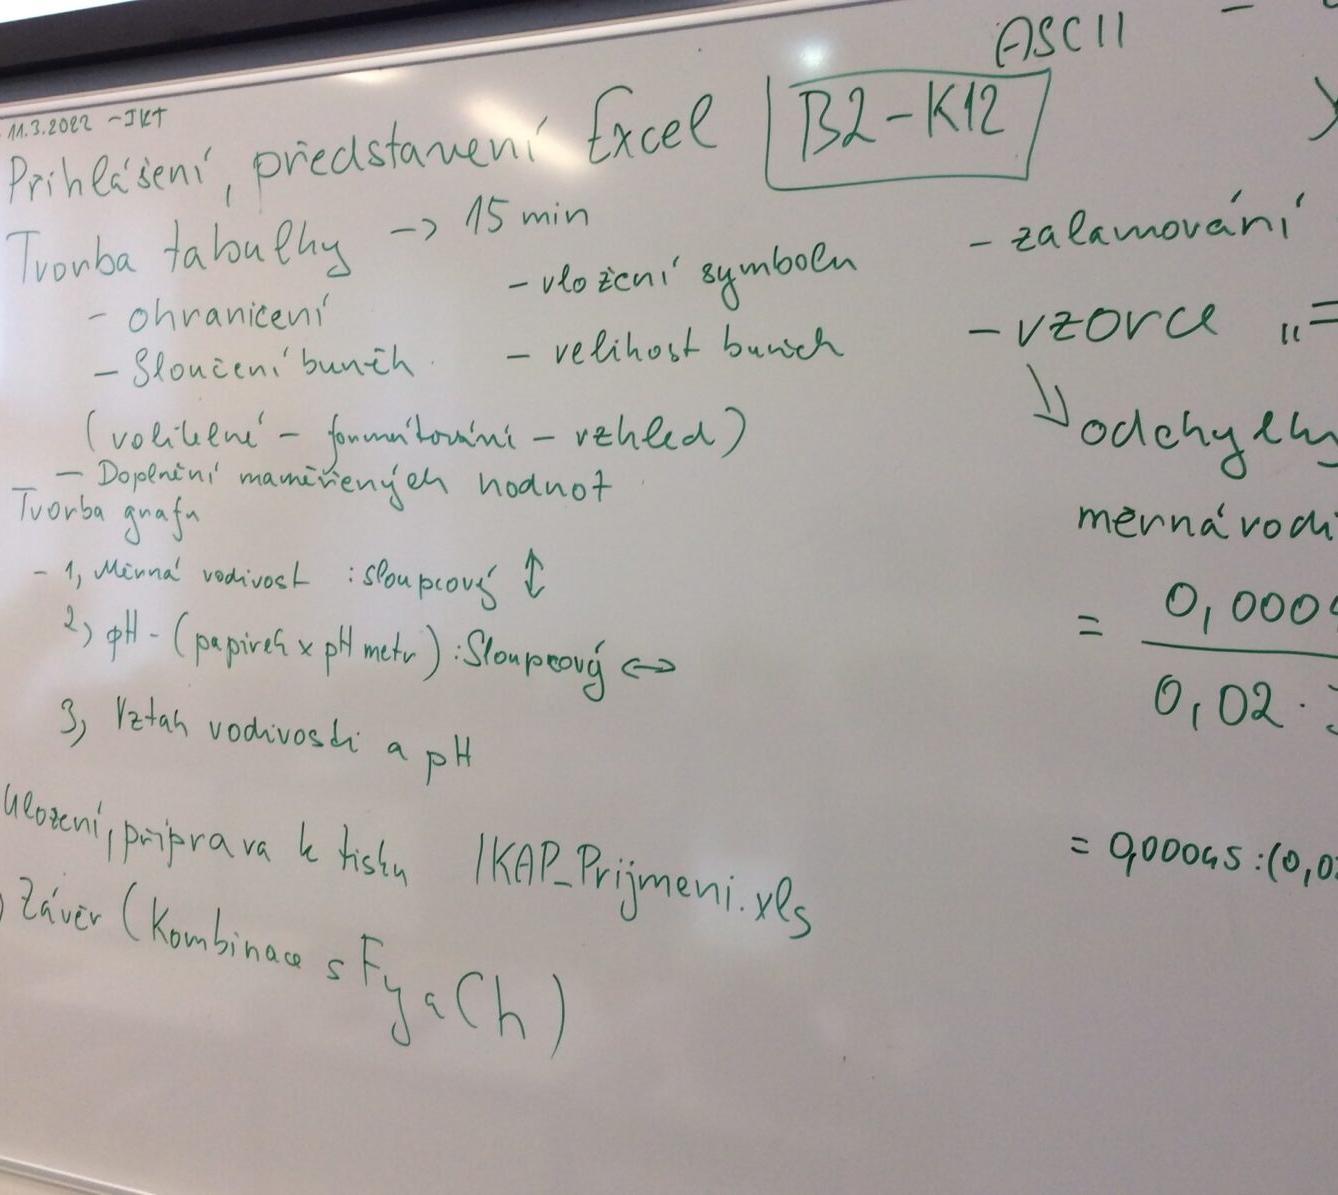 ASCII -
11.3.2022 - IKT
Přihlášení, představení Excel B2-K12
Tvorba tabulky -> 15 min
- zalamování
- ohraničení - vložení symbolu
- vzorce „=
- Sloučení buněk - velikost buněk
↓ odchylky
(volitelné - formátování - vzhled)
- Doplnění naměřených hodnot
Tvorba grafu
měrná vodi
- 1, Měrná vodivost : sloupcový ↕
= 0,000
0,02 ·
2) pH - (papírek x pH metr) : Sloupcový ↔
3, Vztah vodivosti a pH
Uložení, příprava k tisku IKAP_Prijmeni.xls
= 0,00045 : (0,0
) Závěr (Kombinace s Fy a Ch)